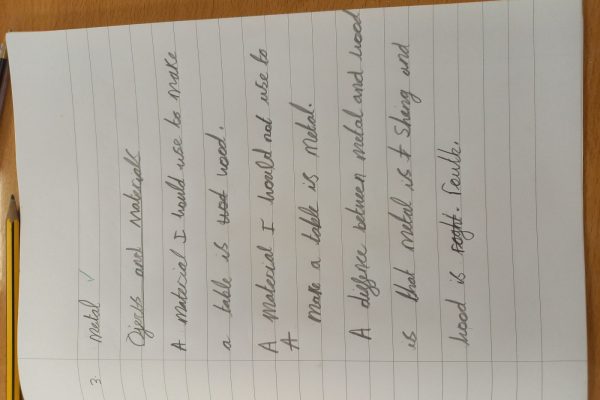 3. Metal ✓
Ojects and materials
A material I would use to make
a table is wood wood.
A material I would not use to
A
make a table is metal.
A diffence between metal and wood
is that metal is t Shiny and
wood is roght. Routh.